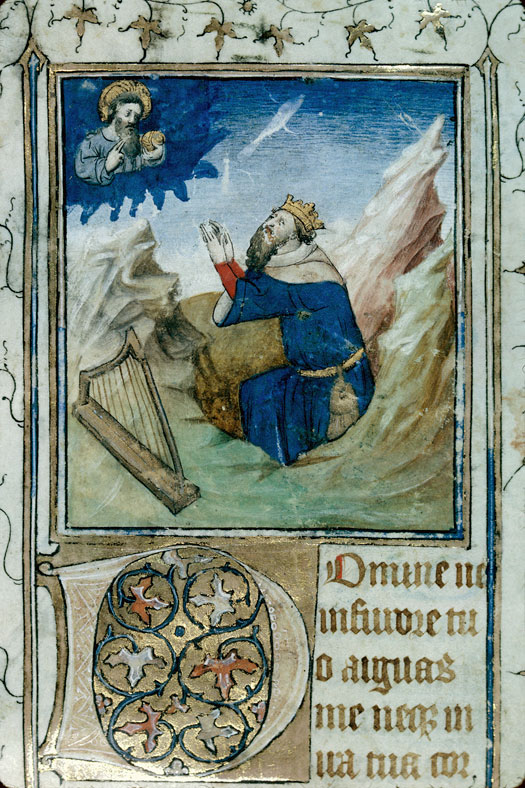 DOmine ne
in furore tu
o arguas
me neqꝫ in
ira tua cor